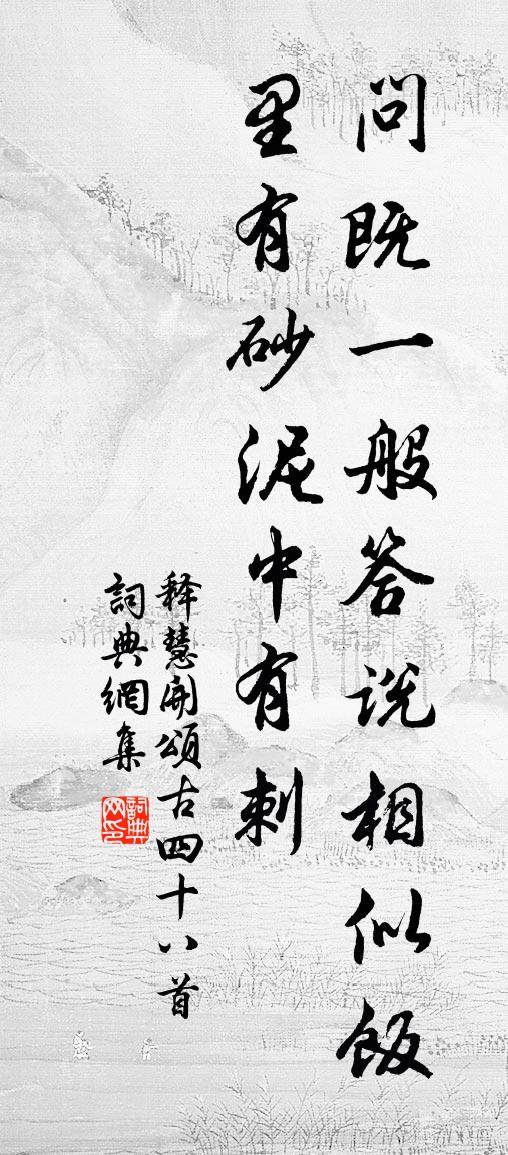 问既一般答说相似饭
里有砂泥中有刺
释慧开颂古四十八首
詞典網集
詞典
网印